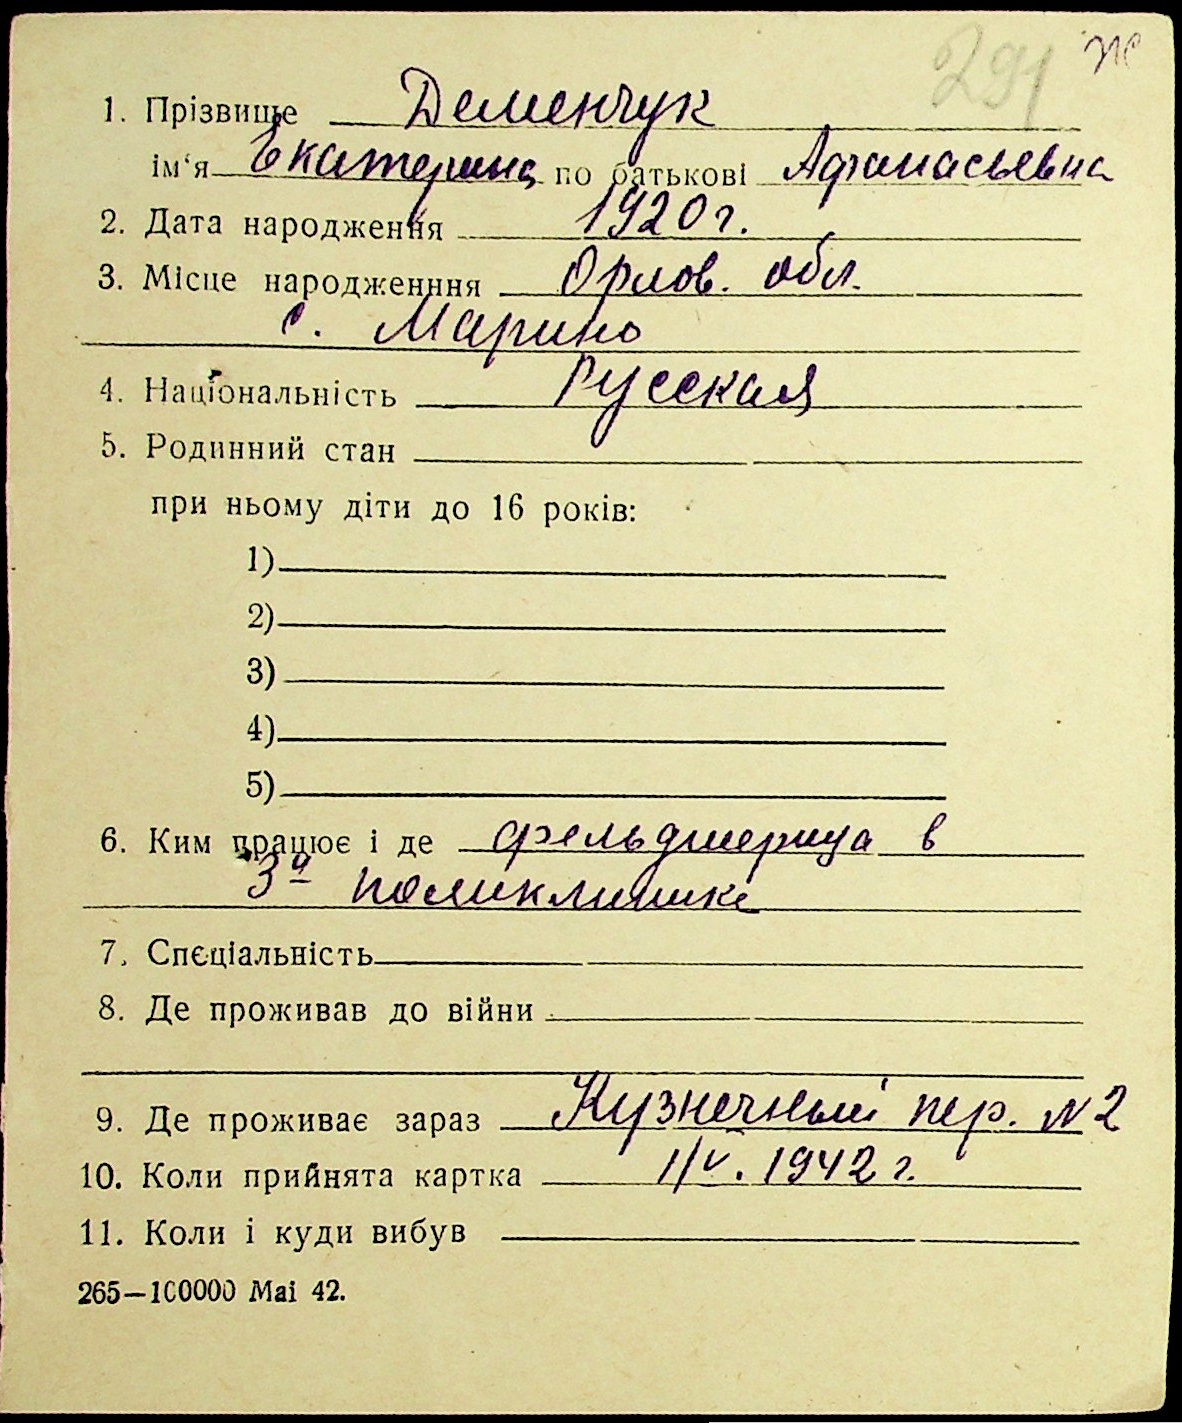 291 Ж
1. Прізвище Деменчук
ім'я Екатерина по батькові Афанасьевна
2. Дата народження 1920 г.
3. Місце народженння Орлов. обл.
с. Марино
4. Національність Русская
5. Родинний стан
при ньому діти до 16 років:
1)
2)
3)
4)
5)
6. Ким працює і де фельдшерица в
3й поликлинике
7. Спєціальність
8. Де проживав до війни
9. Де проживає зараз Кузнечный пер. №2
10. Коли прийнята картка 1/V. 1942 г.
11. Коли і куди вибув
265—100000 Mai 42.